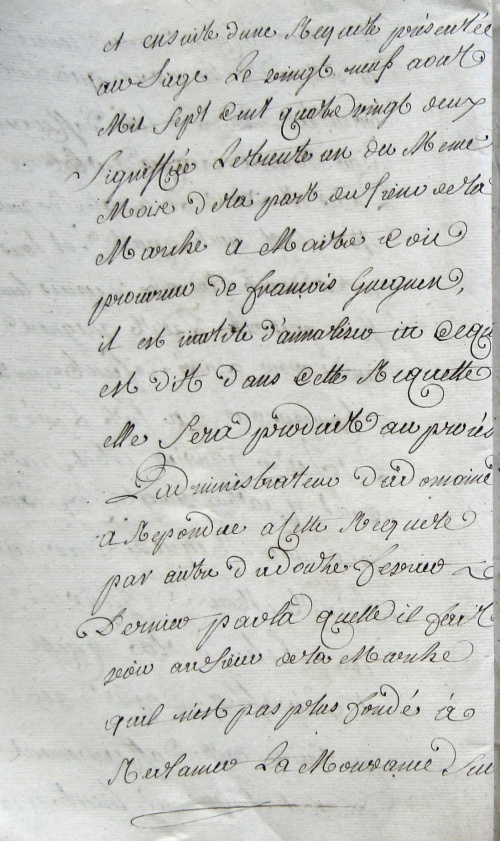 et ensuite dune Requete présentée
au Siege Le vingt neuf aout
Mil Sept Cent quatre vingt deux
Signiffiée Le trente un du Meme
Mois de la part du sieur de la
Marche a Maitre
procureur de françois Gueguen,
il est inutile d'annaliser ici Cequi
est dit dans Cette Requette
elle Sera produitte au procés
L'administrateur du domaine
a Repondue a Cette Requete
par autre du douze fevrier
Dernier par la quelle il fait
voir au Sieur de la Marche
quil n'est pas plus fondé à
Reclamer La Mouvance Sur